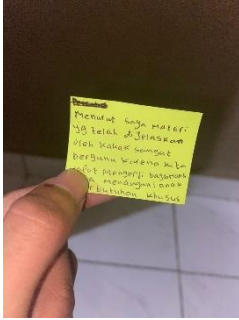 Menurut saya materi
yg telah dijelaskan
oleh kakak sangat
berguna karena kita
dapat mengerti bagaimana
menangani anak
berbutuhan khusus